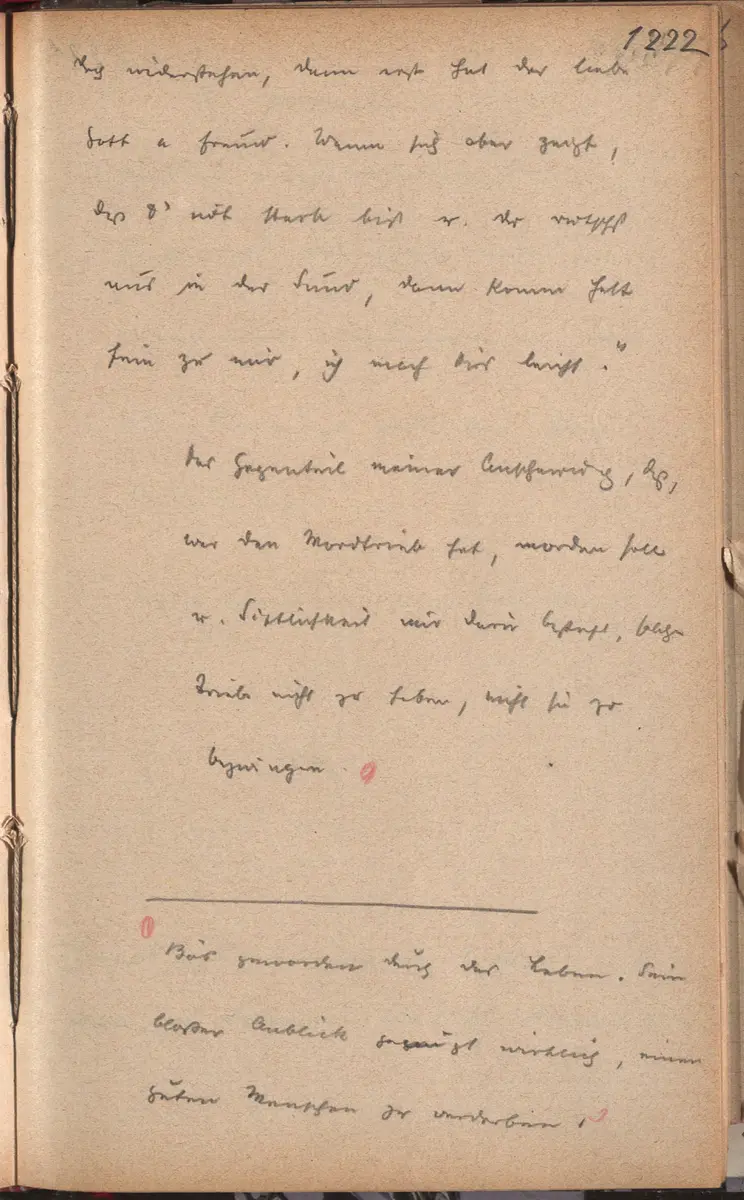 1222
doch widerstehen, dann erst hat der liebe
Gott a Freud. Wenn sich aber zeigt,
daß d' nöt stark bist u. de
nur in der Sünd, dann komm halt
fein zu mir, ich mach dirs leicht."
Das Gegenteil meiner Anschauung, daß,
wer den Mordtrieb hat, morden soll
u. Sittlichkeit nur darin besteht, solche
Triebe nicht zu haben, nicht sie zu
bezwingen.
Bös geworden durch das Leben. Sein
bloßer Anblick genügt wirklich, einen
guten Menschen zu verderben.